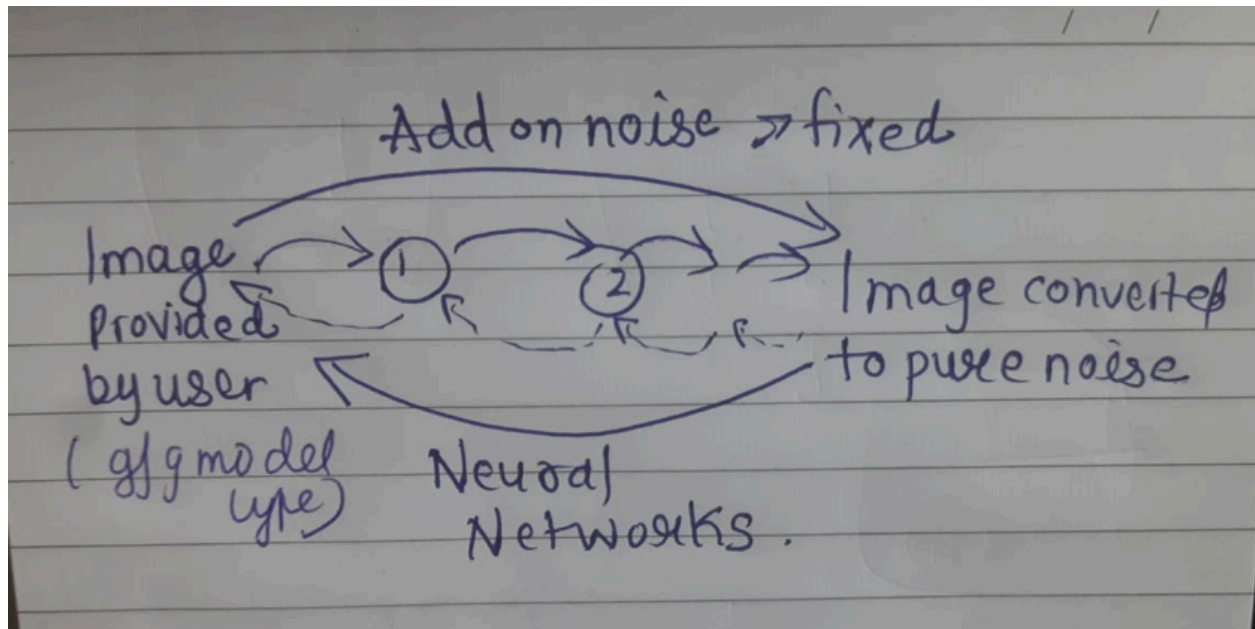 Add on noise → fixed
Image
provided
by user
(gfg model
type)
1
2
Image converted
to pure noise
Neural
Networks.